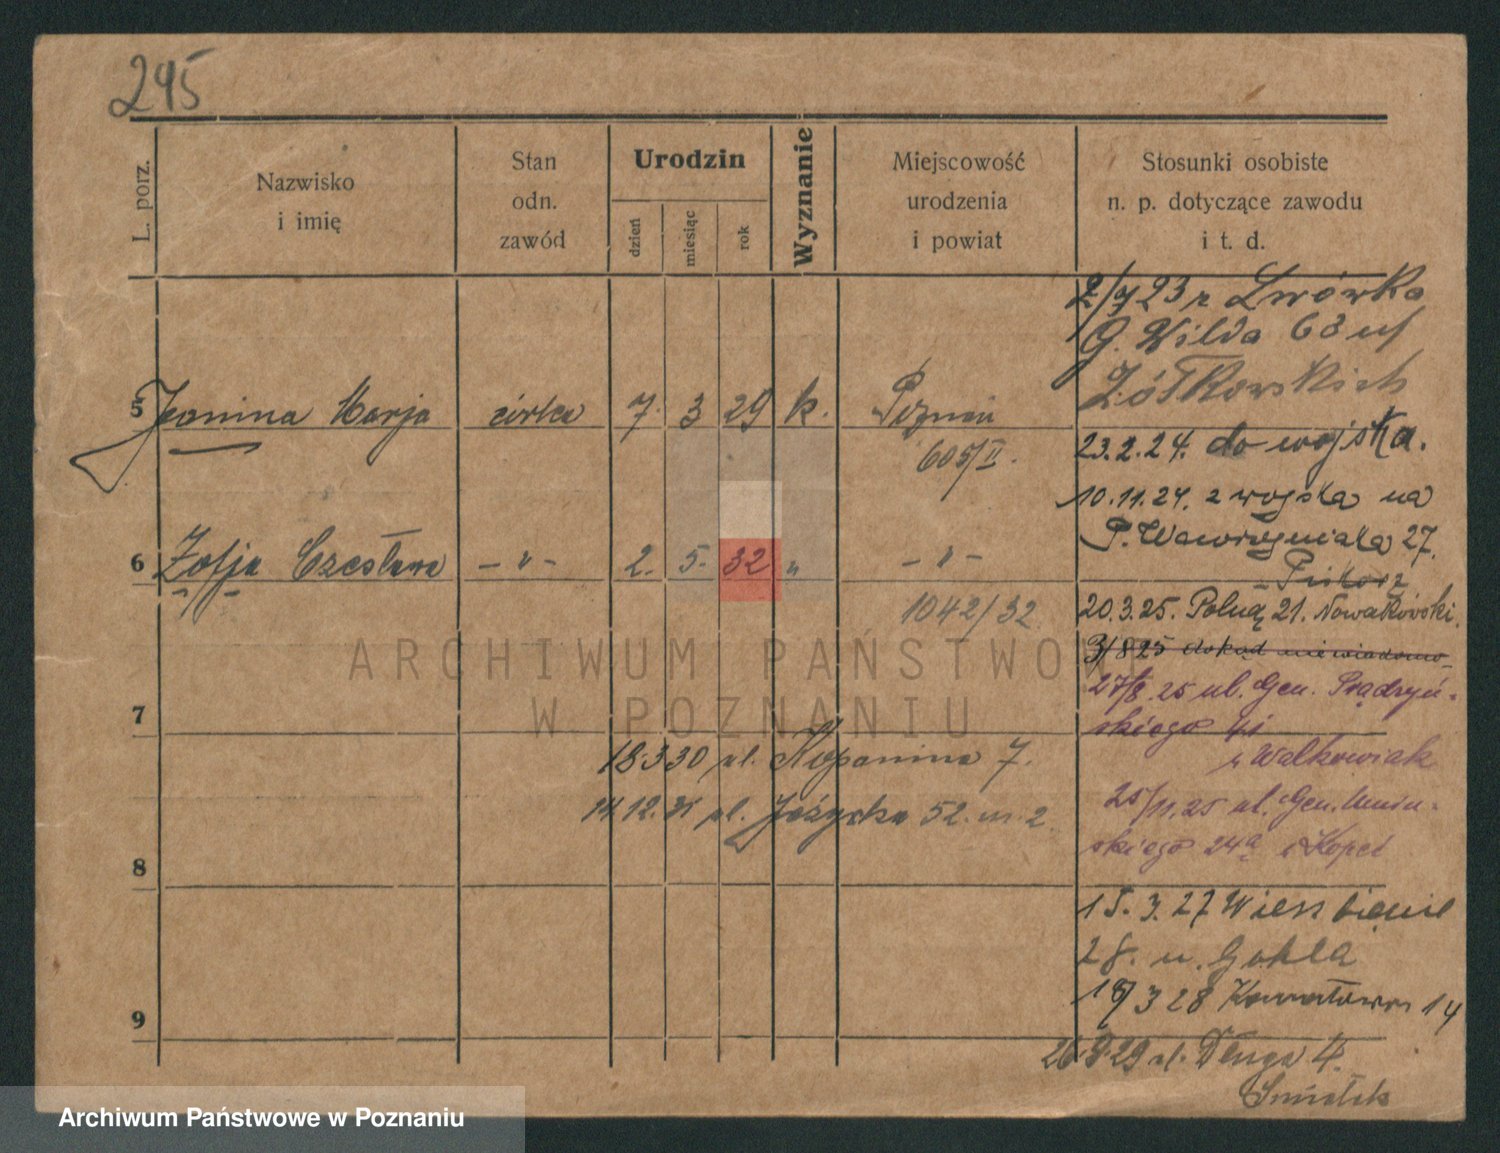 245
L. porz.
Nazwisko
i imię
Stan
odn.
zawód
Urodzin
dzień
miesiąc
rok
Wyznanie
Miejscowość
urodzenia
i powiat
Stosunki osobiste
n. p. dotyczące zawodu
i t. d.
2/7 23 z Lwówka
G. Wilda 68 u/
Żółkowskich
5 Janina Marja córka 7. 3 29 k. Poznań
605/II.
23.2.24. do wojska.
10.11.24. z wojska na
P. Wawrzyniaka 27.
6 Zofja Czesława – " – 2. 5. 32 " – " –
1042/32
20.3.25. Nowakowski.
21.
3/8 25 dokąd niewiadomo
27/8.25 ul. Gen. Prądzyń-
skiego
u Walkowiak
7
18.3.30 ul. Kopanina 7.
14.12.31 pl. 52. m. 2
25/11.25 ul. Gen. Umiń-
skiego 24a
8
15.3.27
28. u.
18/3 28 14
9
26.9.29 ul. Długa 4.
ARCHIWUM PAŃSTWOWE
W POZNANIU
Archiwum Państwowe w Poznaniu